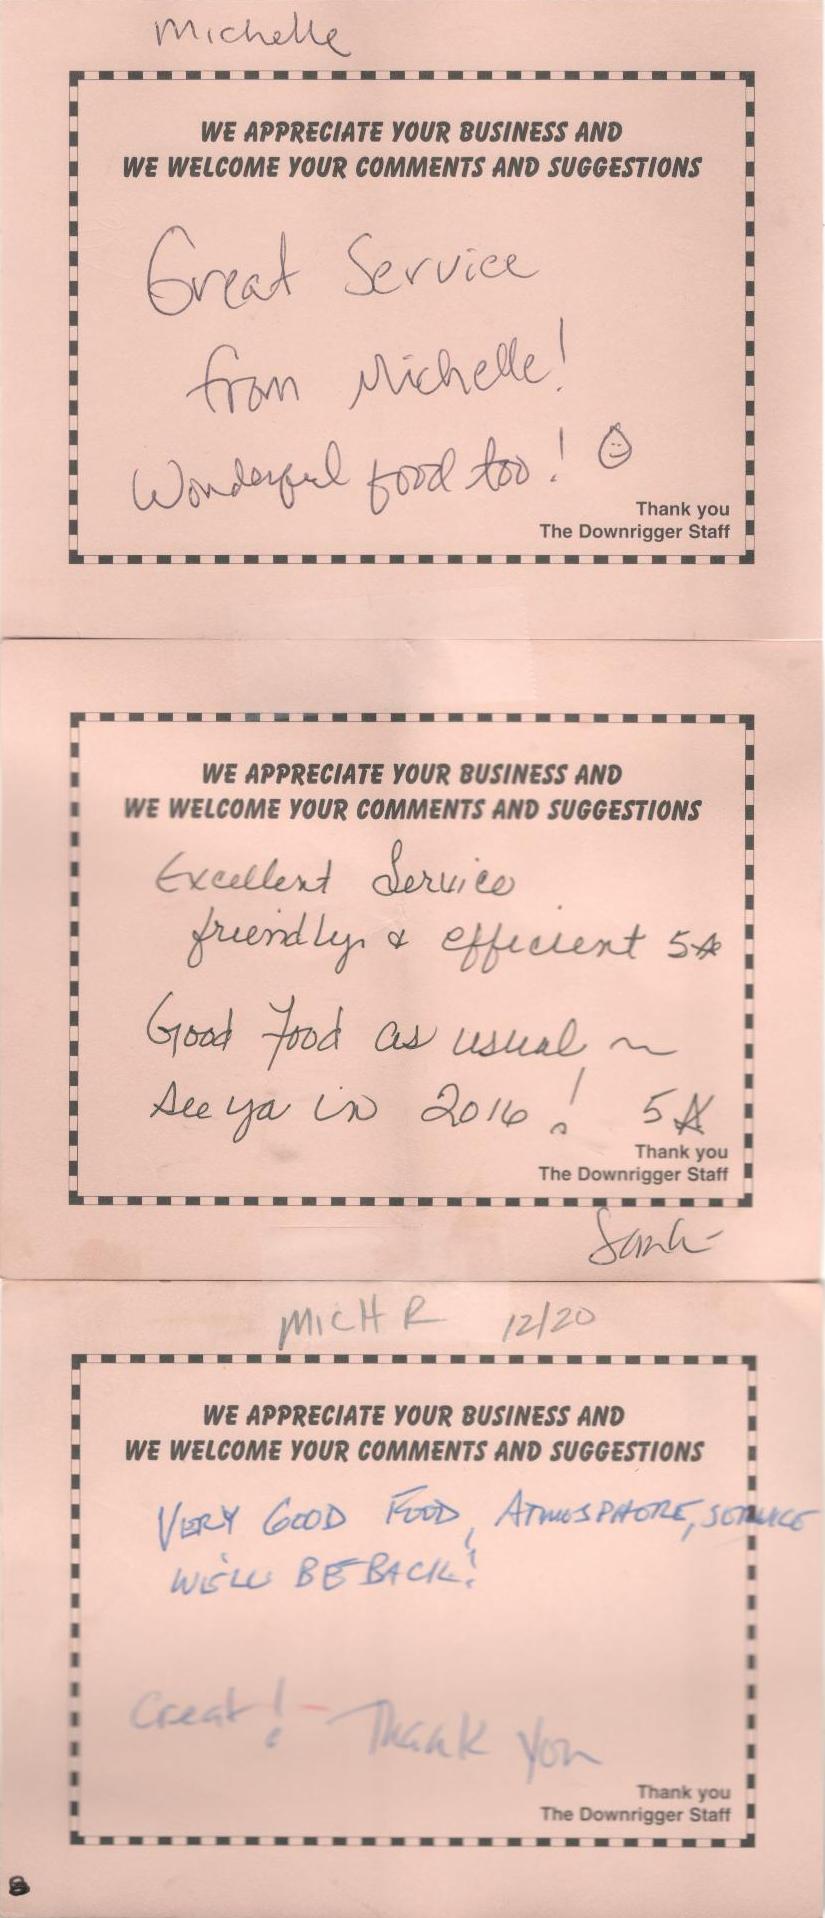 Michelle
WE APPRECIATE YOUR BUSINESS AND
WE WELCOME YOUR COMMENTS AND SUGGESTIONS
Great Service
from Michelle!
Wonderful food too!
Thank you
The Downrigger Staff
WE APPRECIATE YOUR BUSINESS AND
WE WELCOME YOUR COMMENTS AND SUGGESTIONS
Excellent Service
friendly & efficient 5☆
Good Food as usual ~
See ya in 2016! 5☆
Thank you
The Downrigger Staff
MICH R 12/20
WE APPRECIATE YOUR BUSINESS AND
WE WELCOME YOUR COMMENTS AND SUGGESTIONS
VERY GOOD FOOD, ATMOSPHORE, SERVICE
WE'LL BE BACK!
Great! - Thank You
Thank you
The Downrigger Staff
8